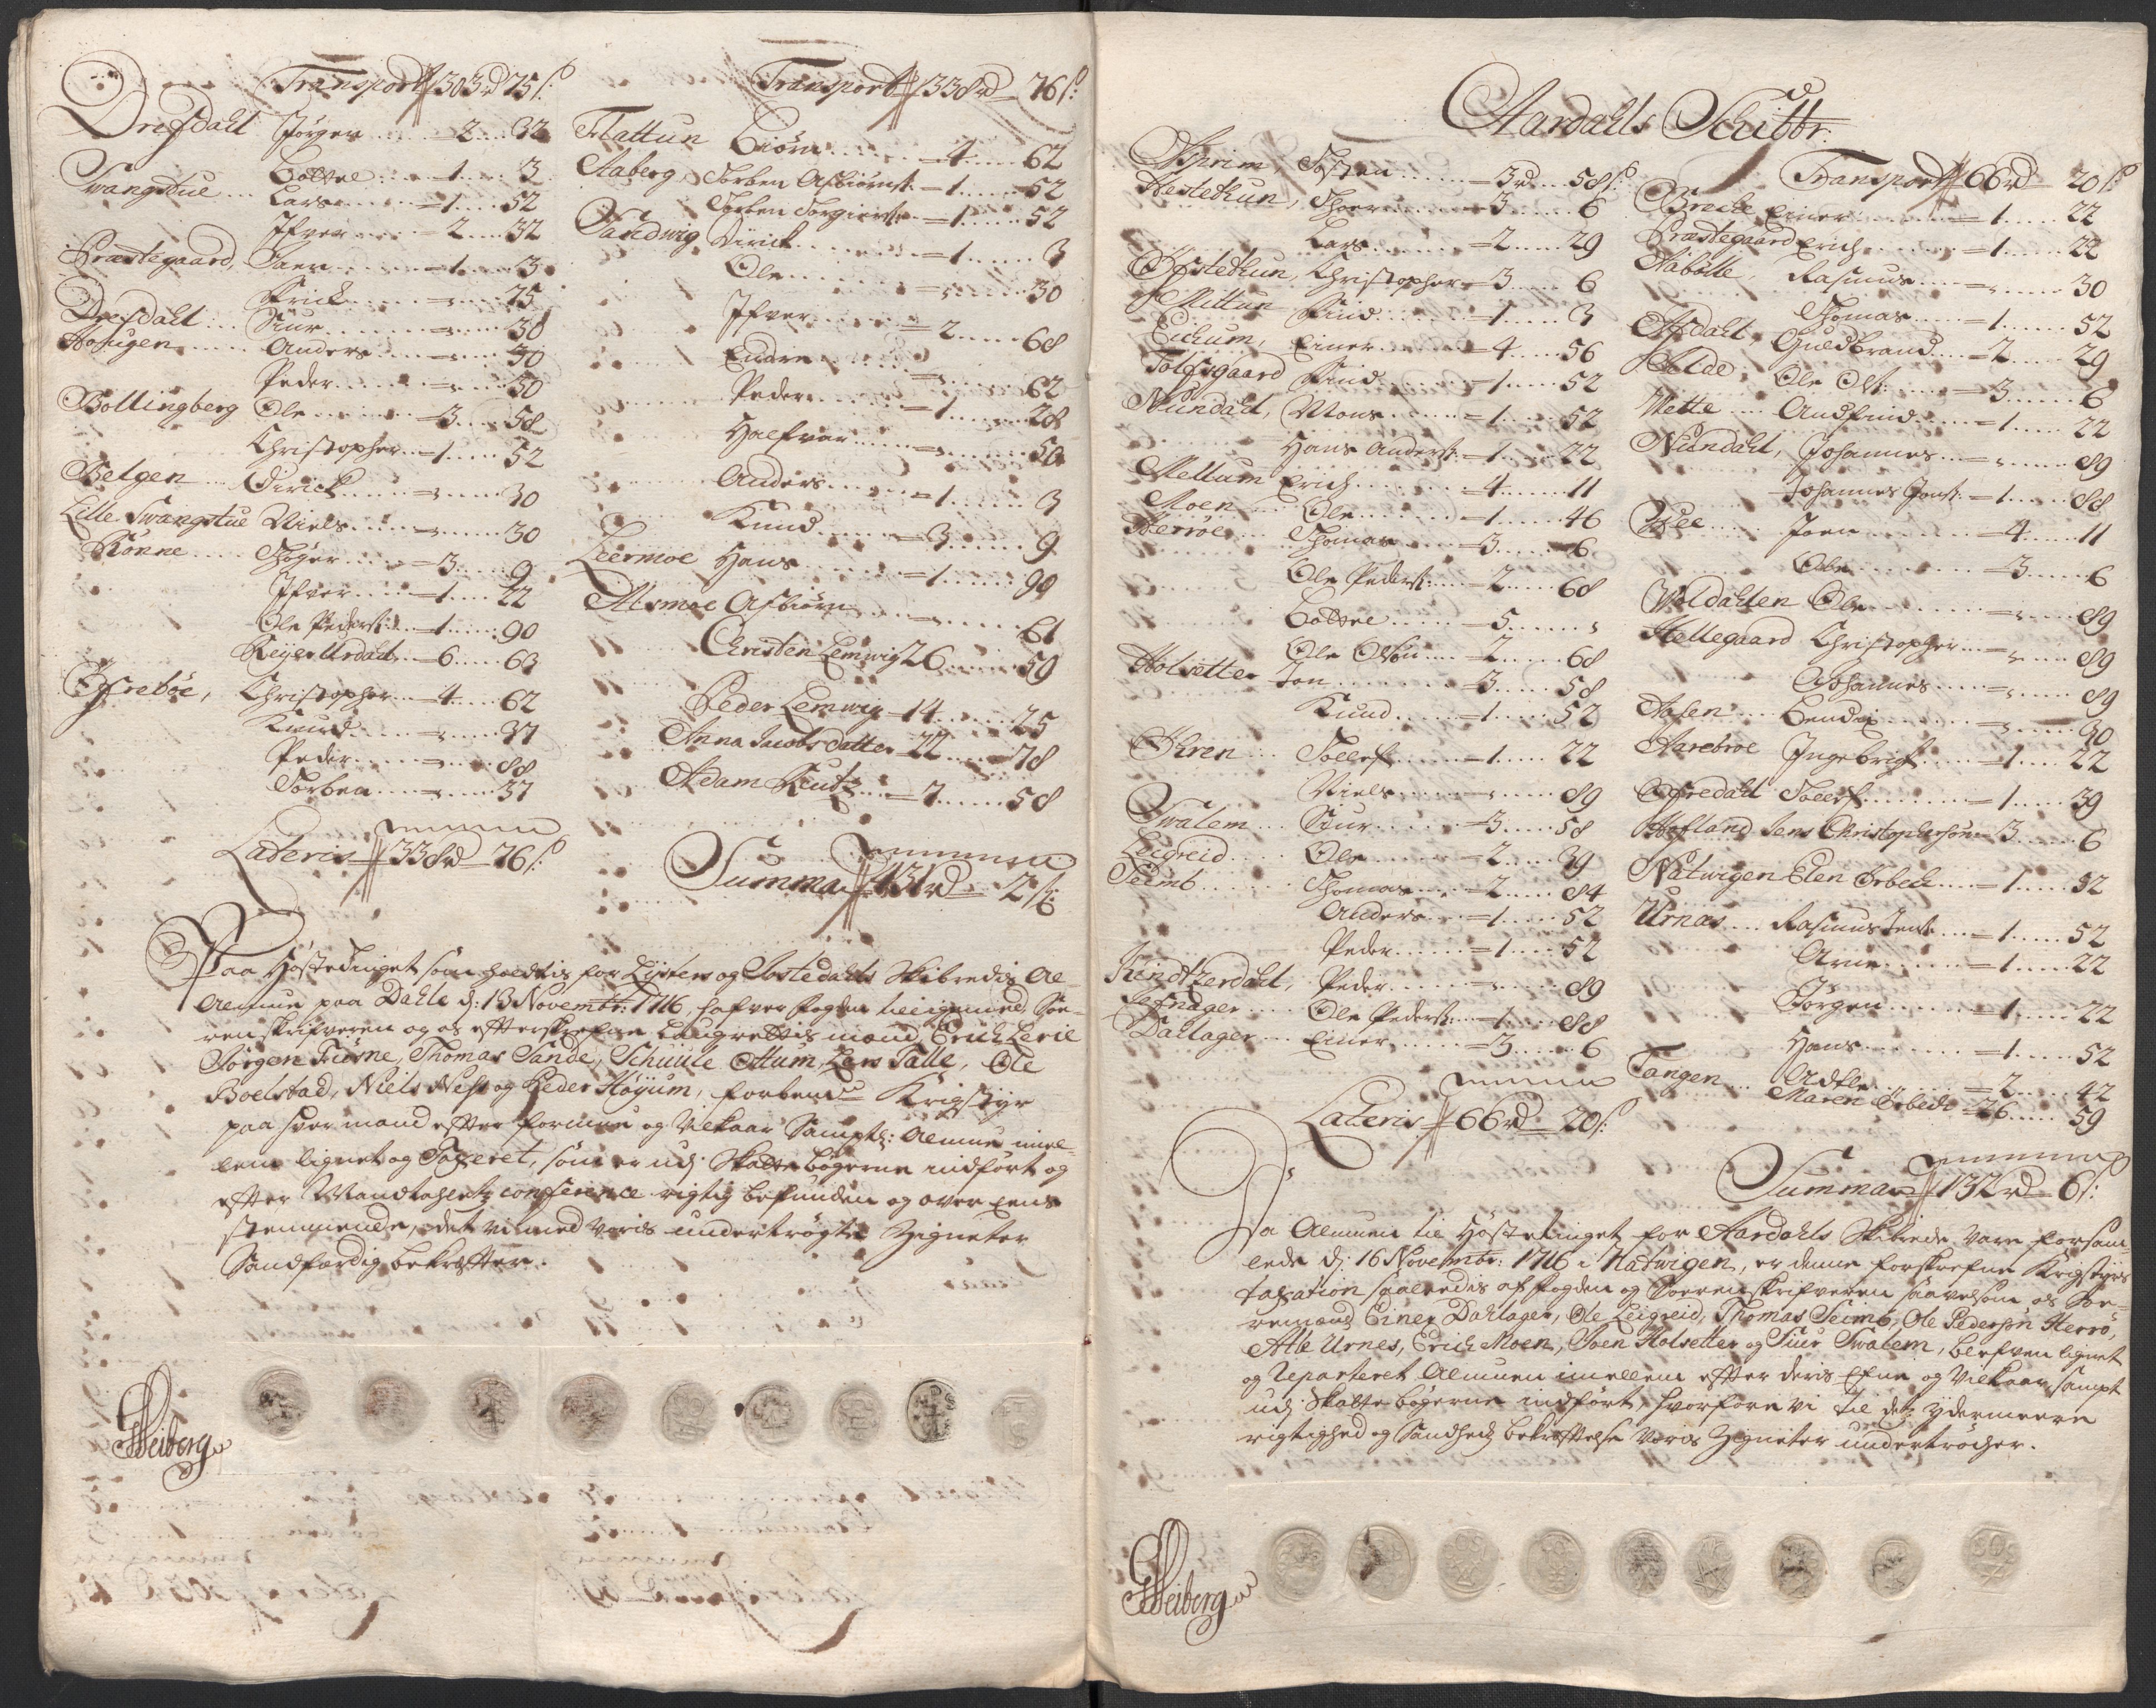 Transport 303rd 75ß:
Drefsdahl Jørgen 2 32
Botele 1 3
Swangstue Lars 1 52
Ifver 2 32
Præstegaard, 1 3
Erick 75
Drefsdahl Siur 30
Haugen Anders 30
Peder 30
Bollingberg Ole 3 58
Christopher 1 52
Betgen Dirick 30
Lille Swangstue Niels 30
Rønne 3 9
Ifver 1 22
Ole Peders: 1 90
Reijer Urdahl 6 63
Christopher 4 62
Knud 37
Peder 88
Torben 37
Lateris 338rd 76ß:
Transport 338rd 76ß:
Flattun Biørn 4 62
Aaberg Torben Asbiørns: 1 52
Torben Torgiers: 1 52
Sandwig Dirick 1 3
Ole 30
Ifver 2 68
Endre 62
Peder 1 28
Halfvor 50
Anders 1 3
Knud 3 9
Leermoe Hans 1 99
Almoe Asbiørn 61
Christen Lemwig 26 59
Peder Lemwig 14 25
Anna Jacobsdatter 22 78
Adam Reutz 7 58
Summa 431rd 2ß:
Paa Høstetinget som holdtis for Lysters og Jostedahls Skibredis Al-
Almue paa Dahle d: 13 Novembr: 1716 hafver fogden tilligemed Soe-
renskrifveren og os efterskrefne Laugrettis mænd Erich Lerie
Jørgen Fiørne, Thomas Sande, Schiule Ottum, Lars Talle, Ole
Boelstad, Niels Næs og Peder Høyum, forbemte Krigstyr
paa hver mand efter formue og Vilkaar Samptl: Almue imel-
lem lignet og Taxeret, som er udj Skattebøgerne indført og
efter Mandtalletz conference rigtig befunden og over Eens
stemmende, det vi med voris undertrøgte Zigneter
Sandfærdig bekræfter.
Weiberg
Aardahls Schibbr:
Asprim, Tosten 3rd 58ß:
Hestethun, 3 6
Lars 2 29
Hestethun, Christopher 3 6
Mittun 1 3
Eichum, Einer 4 56
Tolfsgaard 1 52
Nundahl, Mons 1 52
Hans Anders: 1 22
Mellum Erich 4 11
Moen Ole 1 46
Herrøe Thomas 3 6
Ole Peders: 2 68
Botele 5
Ole Olsøn 2 68
Holsetter Jon 3 58
Knud 1 52
Hren Tollef 1 22
Niels 89
Swalem Siur 3 58
Leigreid Ole 2 39
Seimb Thomas 2 84
Anders 1 52
Peder 1 52
Peder 89
Ole Peders: 1 88
Dahlager Einer 3 6
Lateris 66rd 20ß:
Transport 66rd 20ß:
Breche Einer 1 22
Præstegaard Erich 1 22
Nabølle, Rasmus 30
Thomas 1 52
Afdahl, Guldbrand 2 29
Ole Ols: 3 6
Vette Andfind 1 22
Nundahl, Johannes 89
Johannes Jons: 1 88
Joen 4 11
Ole 3 6
Woldalten Ole 89
Hellegaard Christopher 89
Johannes 89
Aasen Bendix 30
Aarebroe Ingebrigt 1 22
Ofredahl Tollef 1 39
Hofland Jens Christophersøn 3 6
Natwigen Elen Ørbech 1 32
Urnæs Rasmus Jens: 1 52
Arne 1 22
Jørgen 1 22
Hans 1 52
Tangen Adtle 2 42
Maren Ørbech 26 59
Summa 132rd 6ß:
Da Almuen til Høstetinget for Aardahls Skibrede vare forsam-
lede d: 16 Novembr: 1716 i Natwigen, er denne forskrefne Krigstyrs
taxation saaledis af fogden og Sorenskrifveren saavelsom os Soe-
remænd Einer Dahlager, Ole Leigreid, Thomas Seimb, Ole Pedersøn Herrø,
Atle Urnes, Erich Moen, Joen Holsetter og Siur Swalem, blefven lignet
og reparteret Almuen imellem efter deris Efne og Vilkaar sampt
udj Skattebøgerne indført, hvorfore vi til des ydermeere
rigtighed og Sandheds bekræftelse voris Zigneter undertrøcher.
Weiberg